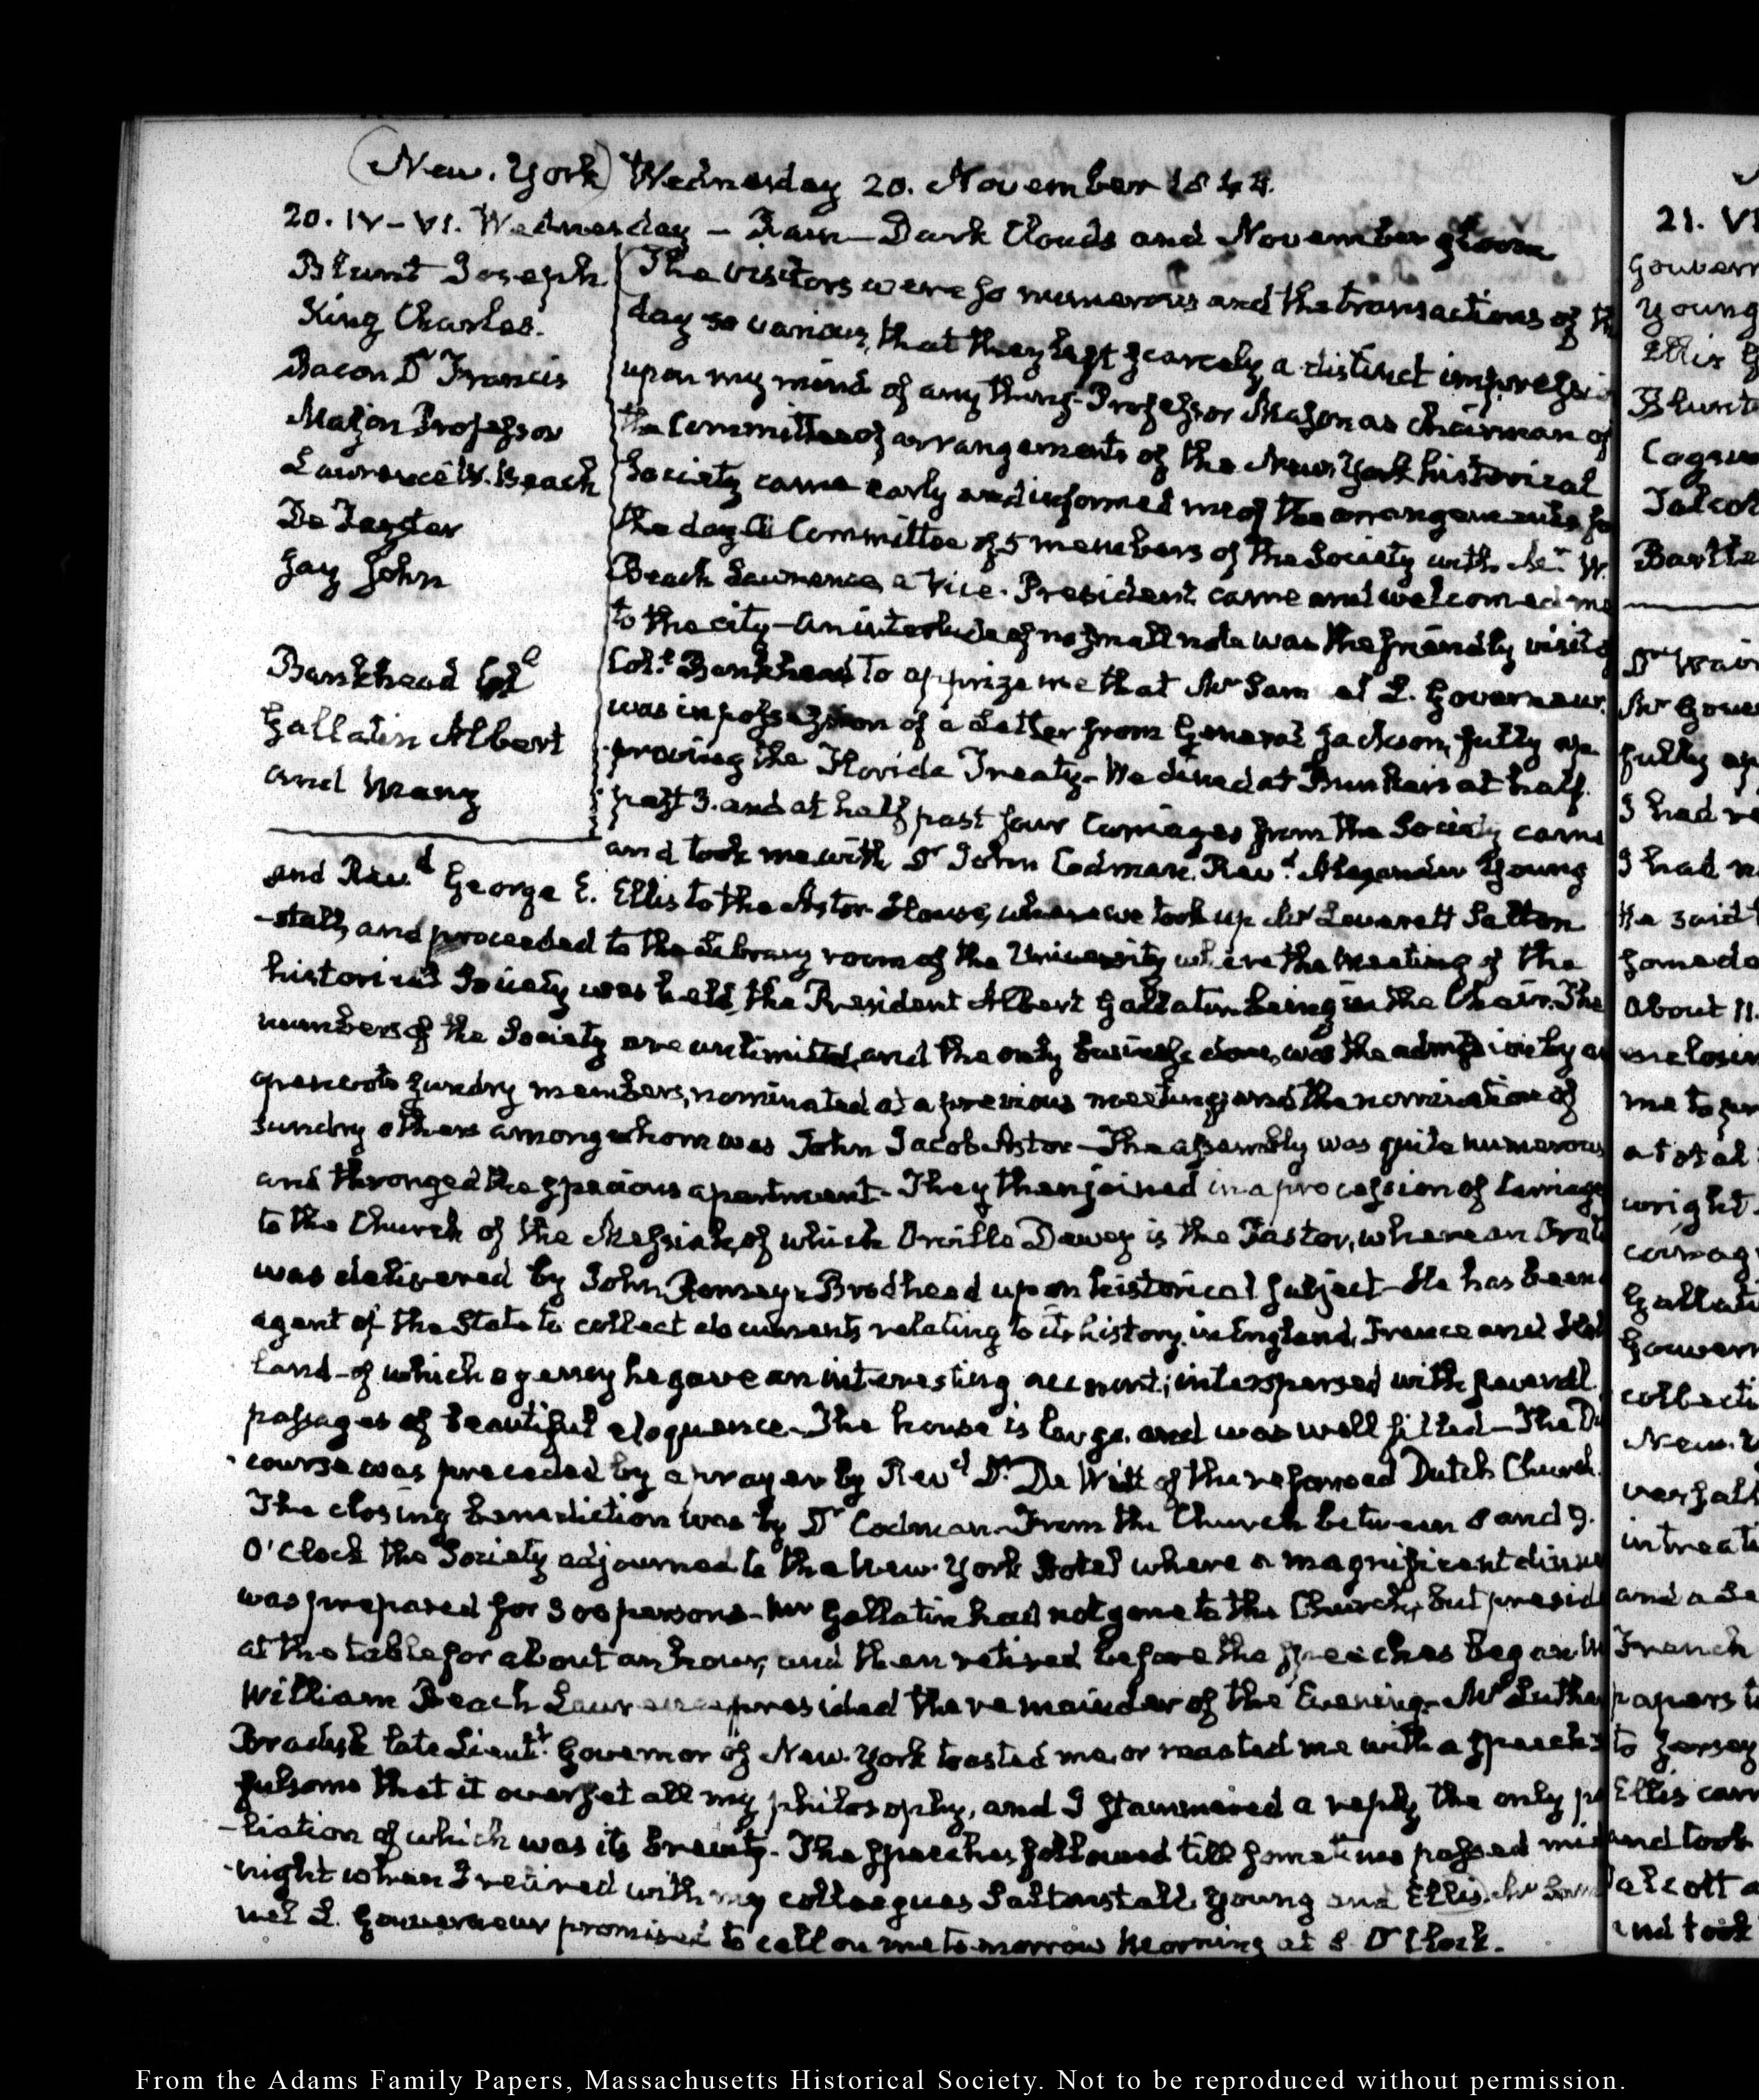 (New. York) Wednesday 20. November 1844.
20. IV-VI. Wednesday - Rain - Dark Clouds and November gloom.
Blunt Joseph
King Charles.
Bacon Dr Francis
Mason Professor
Lawrence W. Beach
De Peyster
Jay John
Bankhead Col
Gallatin Albert
and many
The visitors were so numerous and the transactions of th
day so various, that they left scarcely a distinct impressio
upon my mind of any thing. Professor Mason as Chairman of
the Committee of arrangements of the New York historical
Society came early and informed me of the arrangements fo
the day. A Committee of 5 members of the Society with Mr W.
Beach Lawrence, a Vice. President came and welcomed me
to the city - An interlude of no small note was the friendly visit o
Colo. Bankhead to apprize me that Mr Sam el L. Gouverneur.
was in possession of a Letter from General Jackson, fully ap
proving the Florida Treaty. We dined at Bunkers at half
past 3. and at half past four Carriages from the Society came
and took me with Dr John Codman, Revd. Alexander Young
and Revd George E. Ellis to the Astor House, where we took up Mr Leverett Salton
-stall, and proceeded to the Library room of the University where the meeting of the
historical Society was held, the President Albert Gallatin being in the Chair. The
numbers of the Society are unlimited, and the only business done, was the admission by a
of sundry members, nominated at a previous meeting, and the nomination of
sundry others among whom was John Jacob Astor - The assembly was quite numerous
and thronged the spacious apartment. They then joined in a procession of Carriage
to the Church of the Messiah, of which Orville Dewey is the Pastor, where an Orat
was delivered by John Romeyn Brodhead upon historical subject - He has been
agent of the State to collect documents relating to its history, in England, France and Hol
land - of which agency he gave an interesting account, interspersed with several
passages of beautiful eloquence. The house is large, and was well filled - The Di
course was preceded by a prayer by Revd Dr De Witt of the reformed Dutch Church.
The closing benediction was by Dr Codman. From the Church between 8 and 9.
O'Clock the Society adjourned to the New York Hotel where a magnificent dinne
was prepared for 300 persons - Mr Gallatin had not gone to the Church, but presid
at the table for about an hour, and then retired before the speeches began. M
William Beach Lawrence presided the remainder of the Evening. Mr Luther
Bradish late Lieutt. Governor of New. York toasted me, or roasted me with a speech s
fulsome that it overset all my philosophy, and I stammered a reply the only pa
-liation of which was its brevity. The speeches followed till some time passed mid
-night when I retired with my colleagues Saltonstall, Young and Ellis. Mr Sam
uel L. Gouverneur promised to call on me to-morrow Morning at 8. O'Clock.
21. VI
Gouvern
Young
Ellis G
Blunt
Talcot
Bartle
Mr Gouv
fully ap
I had re
I had n
He said
some do
about 11.
enclosin
me to
a total
wright
Gallati
Gouvern
collecti
New. Y
intreati
and a Le
French
papers t
to Jersey
Ellis cam
and took
alcott a
and took
From the Adams Family Papers, Massachusetts Historical Society. Not to be reproduced without permission.